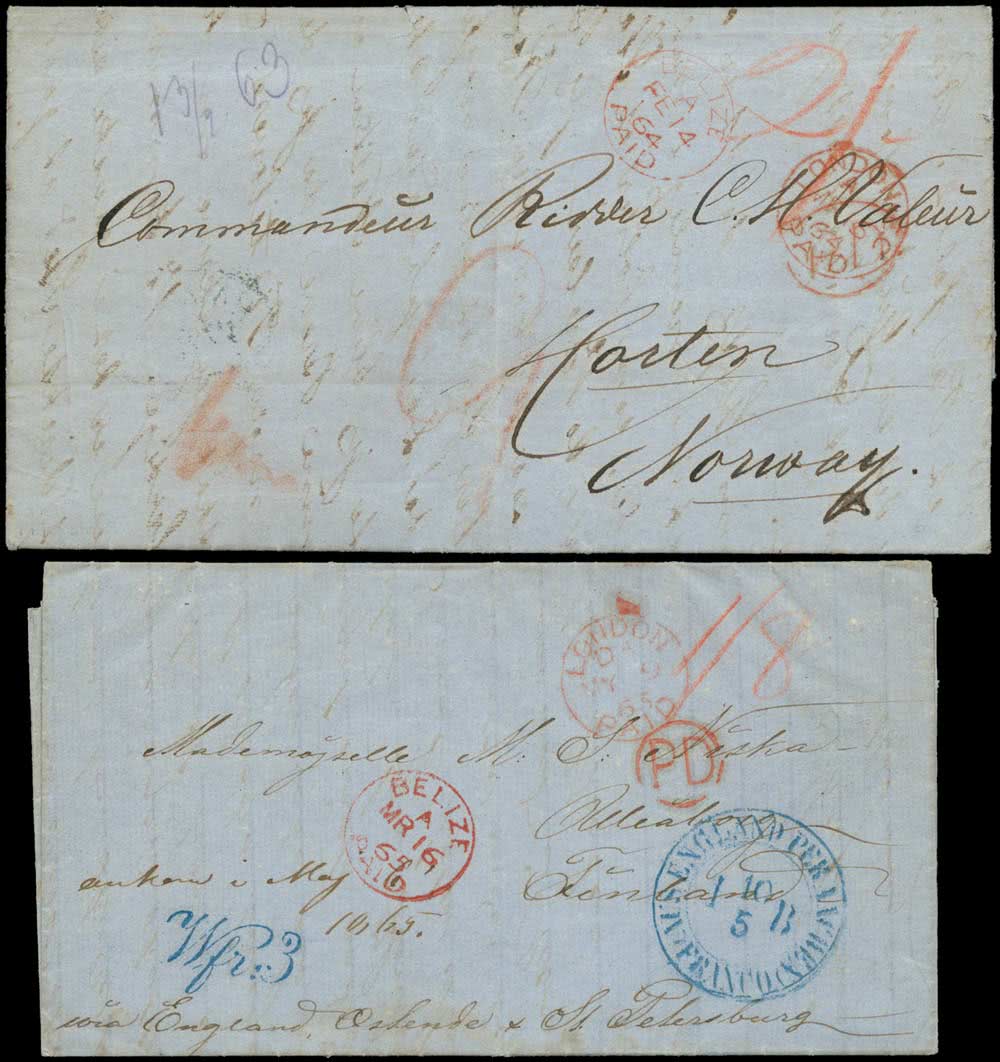 13/9 63
BELIZE
A
FE 14
64
PAID
2/
LONDON
PAID
Commandeur Ridder C. H. Valeur
Horten
Norway.
LONDON
65
PAID
1/8
PD
Mademojselle M. S.
BELIZE
A
MR 16
65
PAID
Finland
ankom i Maj
1865.
Wfr: 3
AUS ENGLAND PER AACHEN
10
5 B
FRANCO
via England, Ostende & St. Petersburg